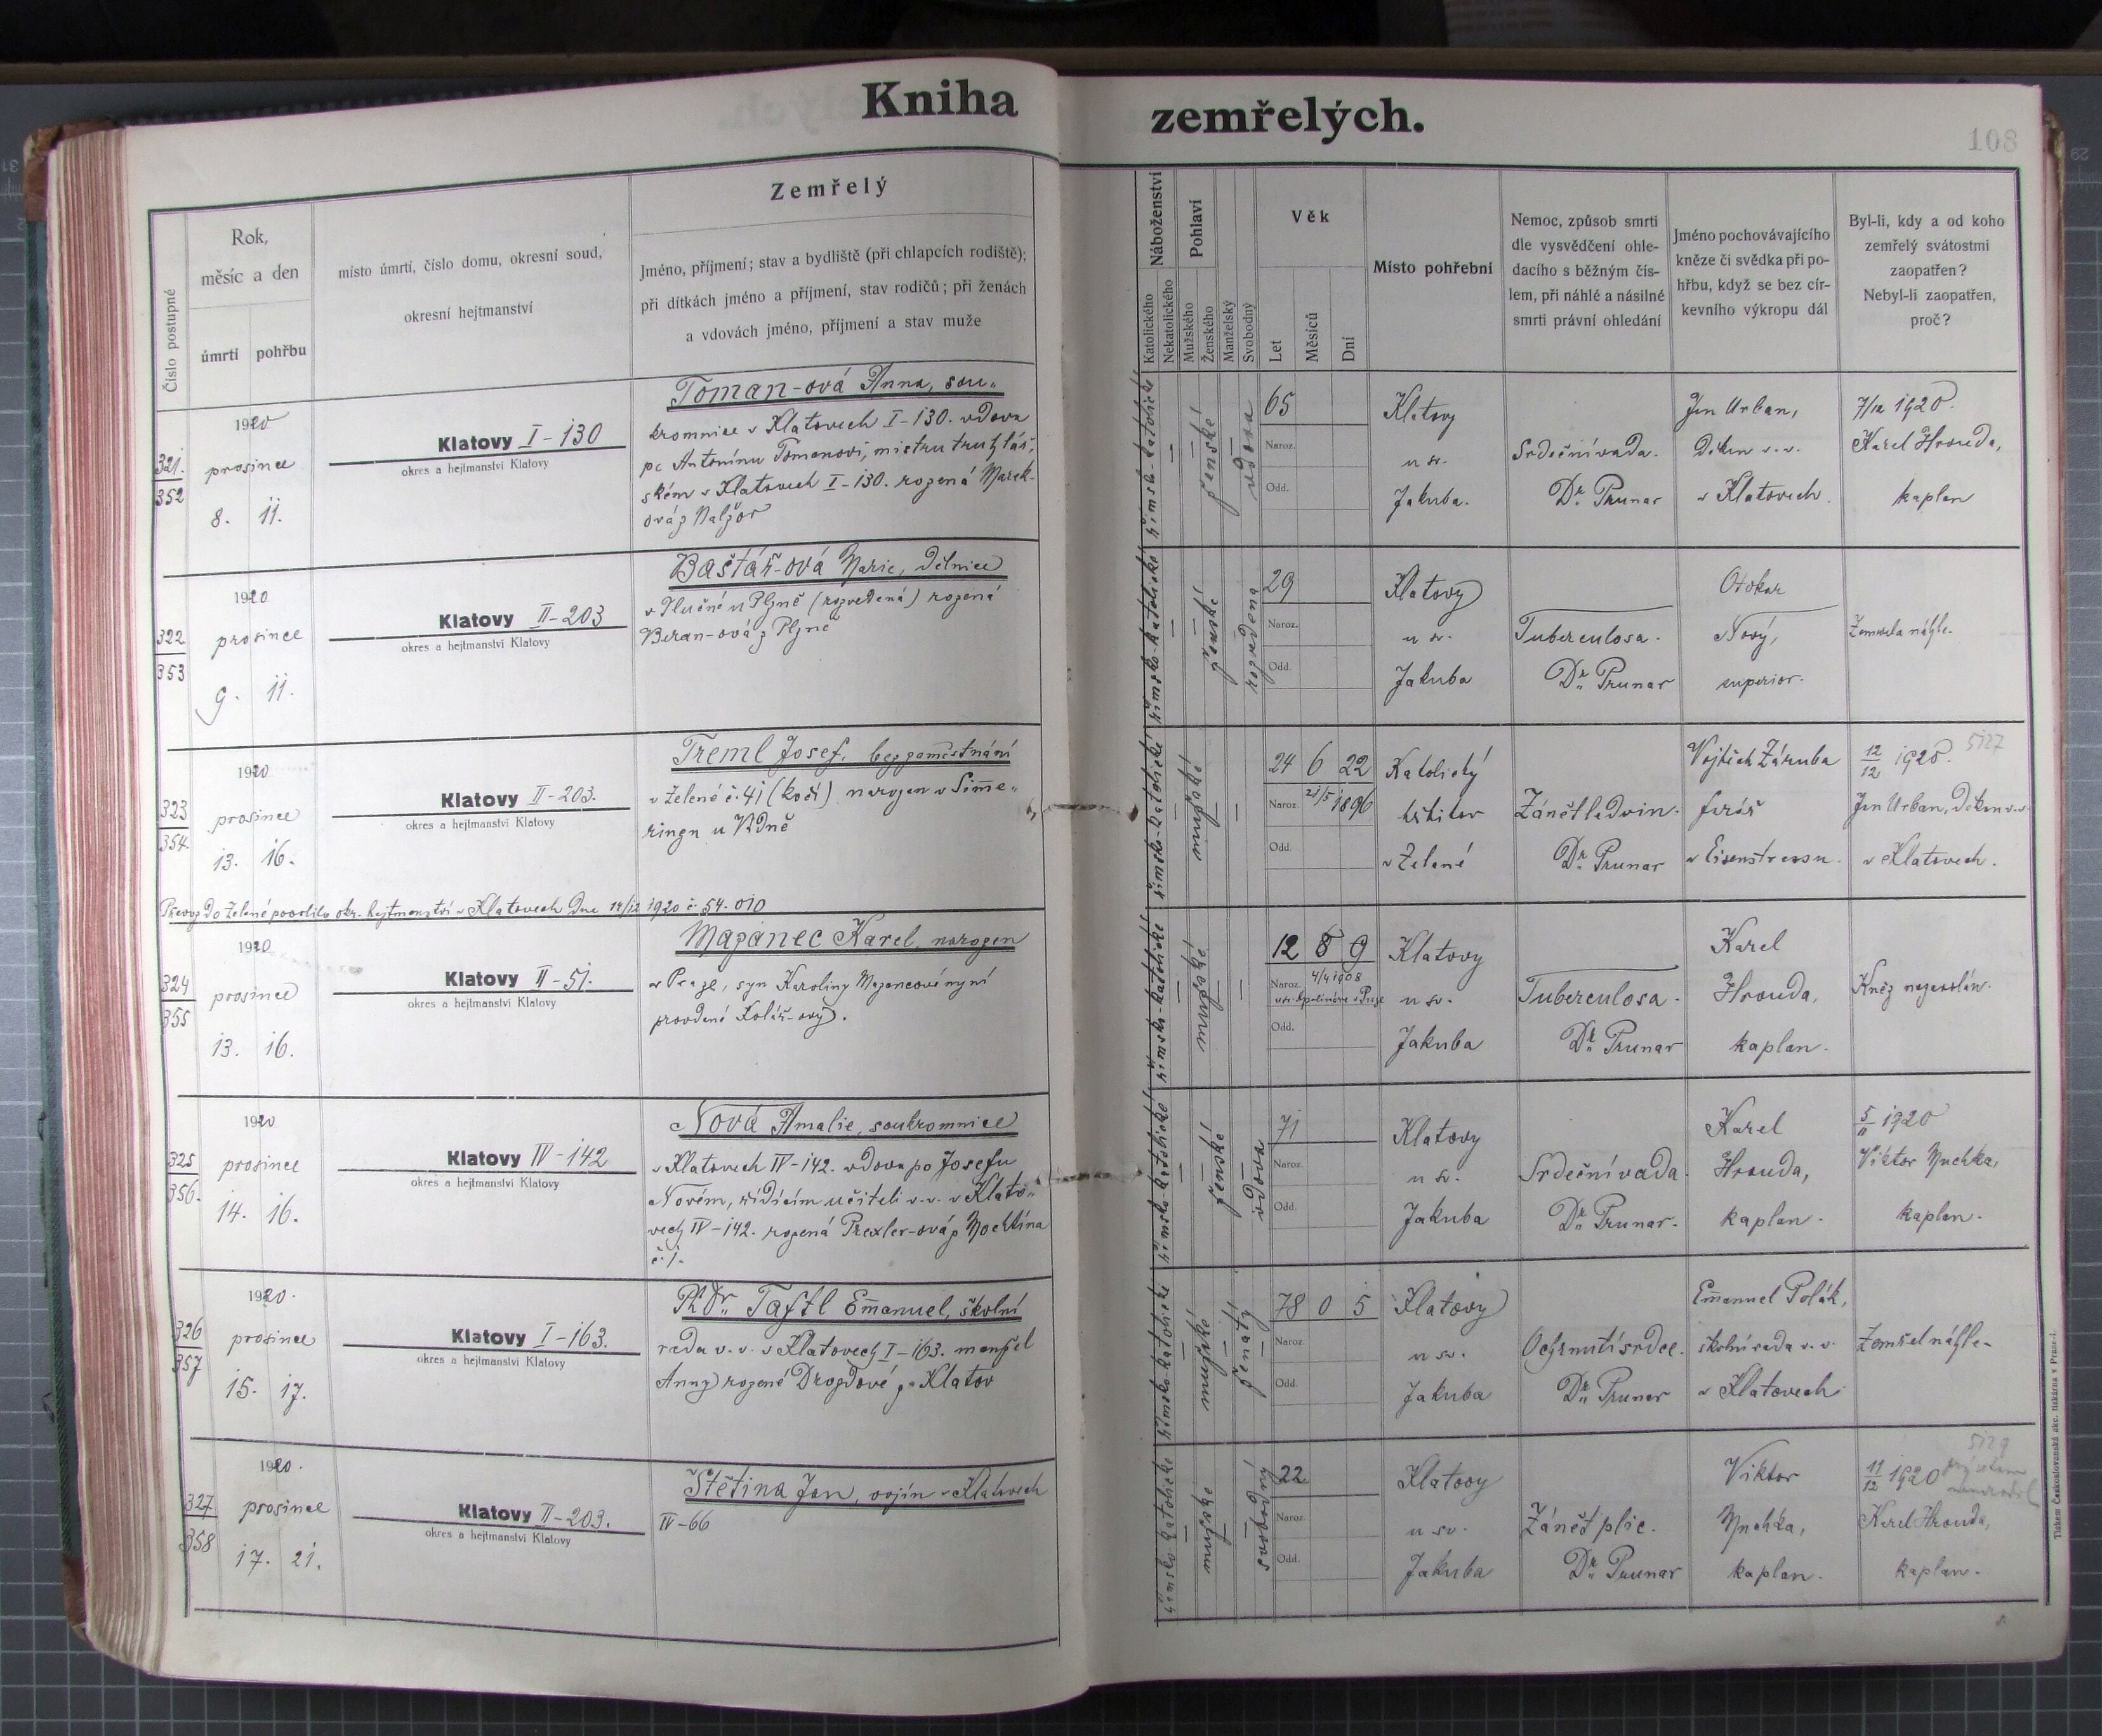 Kniha zemřelých.
108
Číslo postupné
Rok,
měsíc a den
úmrtí
pohřbu
místo úmrtí, číslo domu, okresní soud,
okresní hejtmanství
Zemřelý
Jméno, příjmení; stav a bydliště (při chlapcích rodiště);
při dítkách jméno a příjmení, stav rodičů; při ženách
a vdovách jméno, příjmení a stav muže
Náboženství
Katolického
Nekatolického
Pohlaví
Mužského
Ženského
Manželský
Svobodný
Věk
Let
Měsíců
Dní
Místo pohřební
Nemoc, způsob smrti
dle vysvědčení ohle-
dacího s běžným čís-
lem, při náhlé a násilné
smrti právní ohledání
Jméno pochovávajícího
kněze či svědka při po-
hřbu, když se bez cír-
kevního výkropu dál
Byl-li, kdy a od koho
zemřelý svátostmi
zaopatřen?
Nebyl-li zaopatřen,
proč?
321.
352
1920
prosince
8. 11.
Klatovy I-130
okres a hejtmanství Klatovy
Toman-ová Anna, sou-
kromnice v Klatovech I-130. vdova
po Antonínu Tomanovi, mistru truhlář-
ském v Klatovech I-130. rozená Marek-
ová z Nalžov
římsko-katolické
ženské
vdova
65
Naroz.
Odd.
Klatovy
u sv.
Jakuba.
Srdeční vada.
Dr. Prunar
Jan Urban,
děkan v. v.
v Klatovech.
7/12 1920.
Karel Hrouda,
kaplan
322
353
1920
prosince
9. 11.
Klatovy II-203
okres a hejtmanství Klatovy
Baštář-ová Marie, dělnice
(rozvedená) rozená
Beran-ová z Plzně
římsko-katolické
ženské
rozvedena
29
Naroz.
Odd.
Klatovy
u sv.
Jakuba
Tuberculosa.
Dr. Prunar
Otokar
Nový,
superior.
Zemřela náhle.
323
354
1920
prosince
13. 16.
Klatovy II-203.
okres a hejtmanství Klatovy
Treml Josef, bez zaměstnání
v Zelené č. 41 (kočí) narozen v Sim̄e-
ringu u Vídně
římsko-katolické
mužské
24 6 22
Naroz. 21/5 1896
Odd.
Katolický
hřbitov
v Zelené
Zánět ledvin.
Dr. Prunar
Vojtěch Záruba
farář
v Eisenstrassu.
5127
12/12 1920.
Jan Urban, děkan v. v.
v Klatovech.
Převoz do Zelené povolilo okr. hejtmanství v Klatovech dne 14/12 1920 č. 54.010
324
355
1920
prosince
13. 16.
Klatovy II-51.
okres a hejtmanství Klatovy
Mazanec Karel, narozen
v Praze, syn Karoliny Mazancové nyní
provdané Kolář-ový.
římsko-katolické
mužské
12 8 9
Naroz. 4/4 1908
u sv. Apolináře v Praze
Odd.
Klatovy
u sv.
Jakuba
Tuberculosa.
Dr. Prunar
Karel
Hrouda,
kaplan.
Kněz nezavolán.
325
356.
1920
prosince
14. 16.
Klatovy IV-142
okres a hejtmanství Klatovy
Nová Amalie, soukromnice
v Klatovech IV-142. vdova po Josefu
Novém, řídícím učiteli v. v. v Klato-
vech IV-142. rozená Trexler-ová z Mochtína
č. 1.
římsko-katolické
ženské
vdova
71
Naroz.
Odd.
Klatovy
u sv.
Jakuba
Srdeční vada.
Dr. Prunar.
Karel
Hrouda,
kaplan.
5/11 1920
Viktor Muchka,
kaplan.
326
357
1920.
prosince
15. 17.
Klatovy I-163.
okres a hejtmanství Klatovy
PhDr. Taftl Em̄anuel, školní
rada v. v. v Klatovech I-163. manžel
Anny rozené Drozdové z Klatov
římsko-katolické
mužské
ženatý
78 0 5
Naroz.
Odd.
Klatovy
u sv.
Jakuba
Ochrnutí srdce.
Dr. Prunar
Em̄anuel Polák,
školní rada v. v.
v Klatovech
Zemřel náhle.
327
358
1920.
prosince
17. 21.
Klatovy II-203.
okres a hejtmanství Klatovy
Štětina Jan, vojín v Klatovech
IV-66
římsko-katolické
mužské
svobodný
22
Naroz.
Odd.
Klatovy
u sv.
Jakuba
Zánět plic.
Dr. Prunar
Viktor
Muchka,
kaplan.
5129
11/12 1920
Karel Hrouda,
kaplan.
Tiskem Českoslovanská akc. tiskárna v Praze-I.